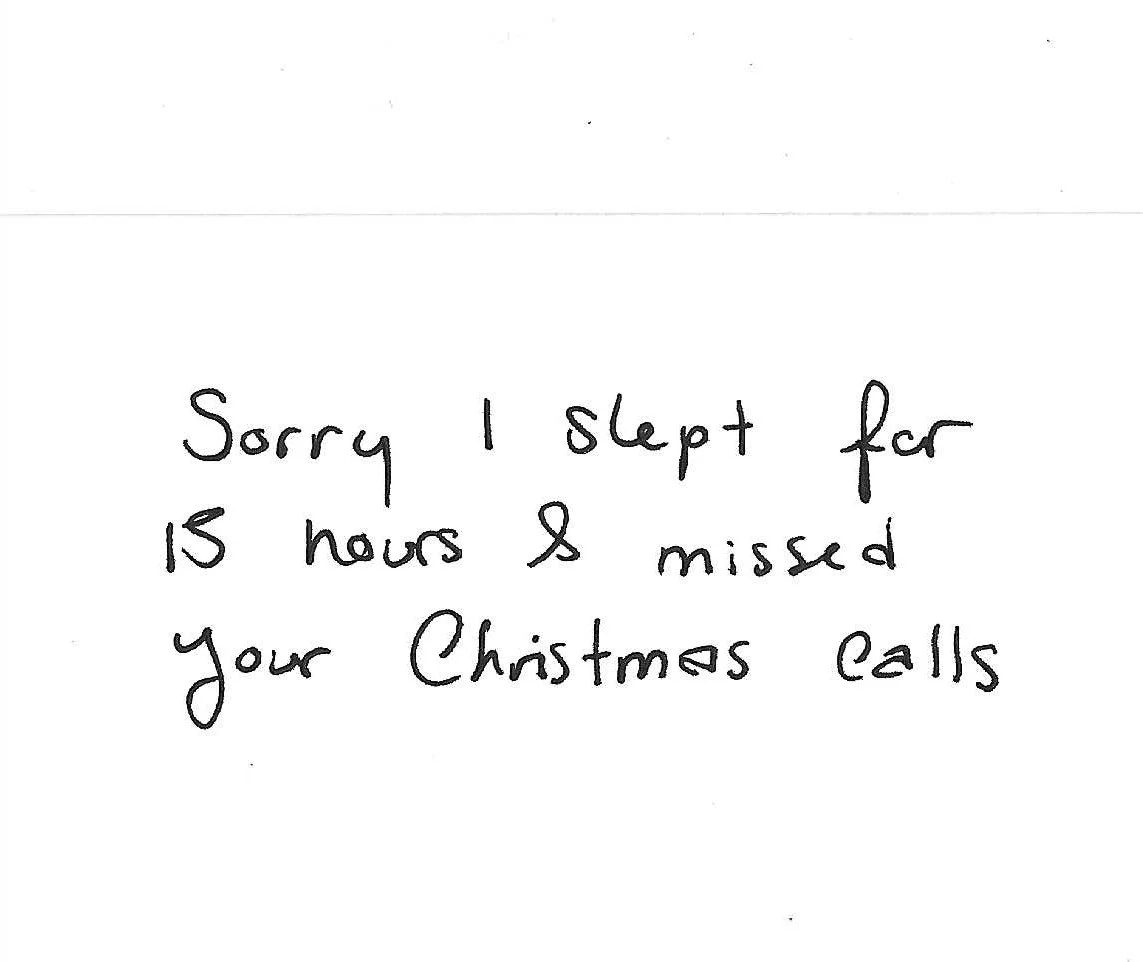 Sorry I slept for
15 hours & missed
your Christmas calls